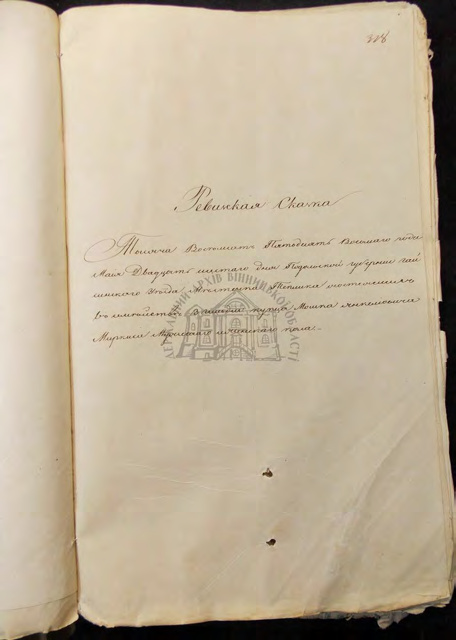 328
Ревизская Сказка
Тысяча Восемьсот Пятьдесят Восьмаго года
Мая Двадцать шестаго дня Подольской губернии гай
синскаго Уезда Местечка Теплика состоящихъ
въ 3 гильдии купца Мошка Янкелевича
мужескаго и женскаго пола
ДЕРЖАВНИЙ АРХІВ ВІННИЦЬКОЇ ОБЛАСТІ